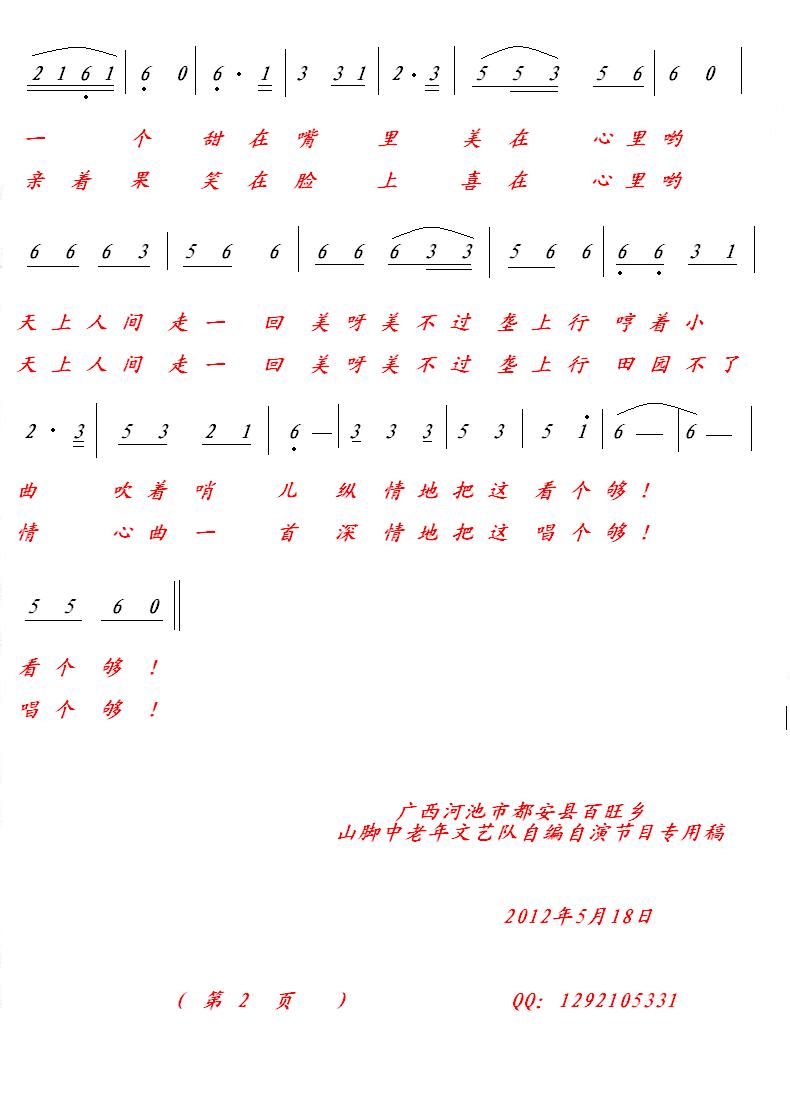 2 1 6 1 | 6 0 | 6 · 1 | 3 3 1 | 2 · 3 | 5 5 3 5 6 | 6 0 |
一 个 甜 在 嘴 里 美 在 心 里 哟
亲 着 果 笑 在 脸 上 喜 在 心 里 哟
6 6 6 3 | 5 6 6 | 6 6 6 3 3 | 5 6 6 | 6 6 3 1 |
天 上 人 间 走 一 回 美 呀 美 不 过 垄 上 行 哼 着 小
天 上 人 间 走 一 回 美 呀 美 不 过 垄 上 行 田 园 不 了
2 · 3 | 5 3 2 1 | 6 — | 3 3 3 | 5 3 | 5 1 | 6 — | 6 — |
曲 吹 着 哨 儿 纵 情 地 把 这 看 个 够 !
情 心 曲 一 首 深 情 地 把 这 唱 个 够 !
5 5 6 0 ‖
看 个 够 !
唱 个 够 !
广西河池市都安县百旺乡
山脚中老年文艺队自编自演节目专用稿
2012年5月18日
( 第 2 页 ) QQ: 1292105331